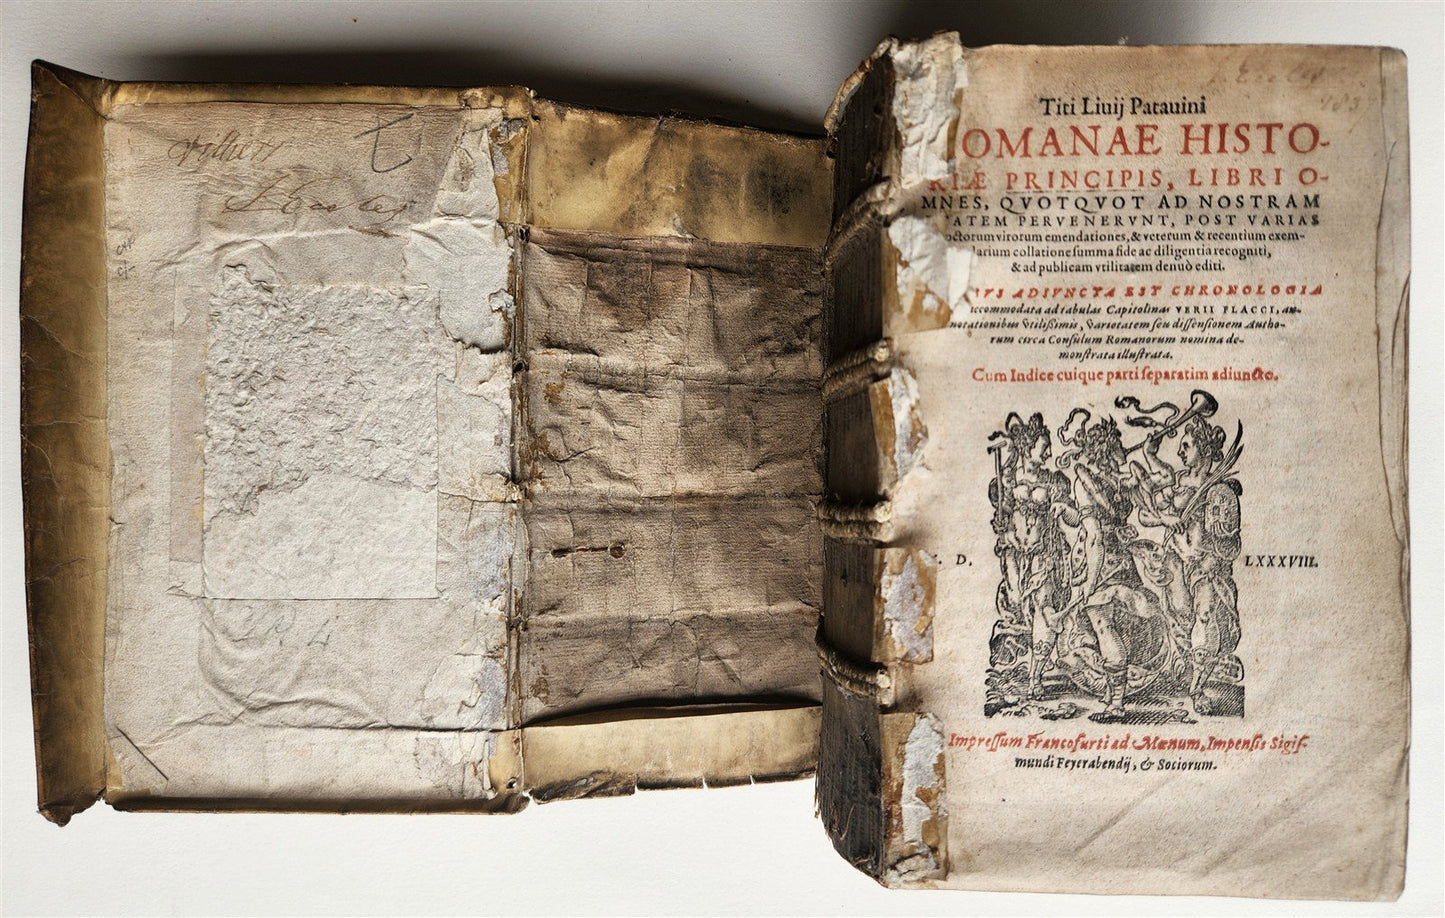 Titi Liuij Patauini
OMANAE HISTO-
RIÆ PRINCIPIS, LIBRI O-
MNES, QVOTQVOT AD NOSTRAM
ATEM PERVENERVNT, POST VARIAS
octorum virorum emendationes, & veterum & recentium exem-
larium collatione summa fide ac diligentia recogniti,
& ad publicam vtilitatem denuò editi.
VS ADIVNCTA EST CHRONOLOGIA
ccommodata ad tabulas Capitolinas VERII FLACCI, an-
notationibus vtilißimis, varietatem seu dissensionem Autho-
rum circa Consulum Romanorum nomina de-
monstrata illustrata.
Cum Indice cuique parti separatim adiuncto.
. D. LXXXVIII.
Impressum Francofurti ad Mœnum, Impensis Sigis-
mundi Feyerabendij, & Sociorum.